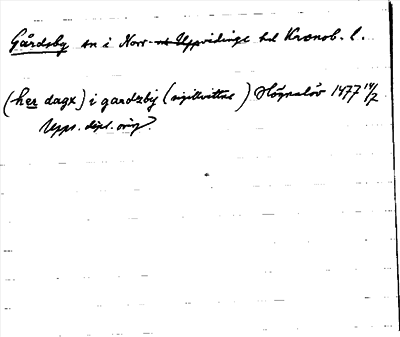 Gårdsby sn i Norr- Uppvidinge hd Kronob. l.
(her dagx) i gardzbij (sigillvittne) Högnalöv 1477 14/2
Upps. dipl. orig.